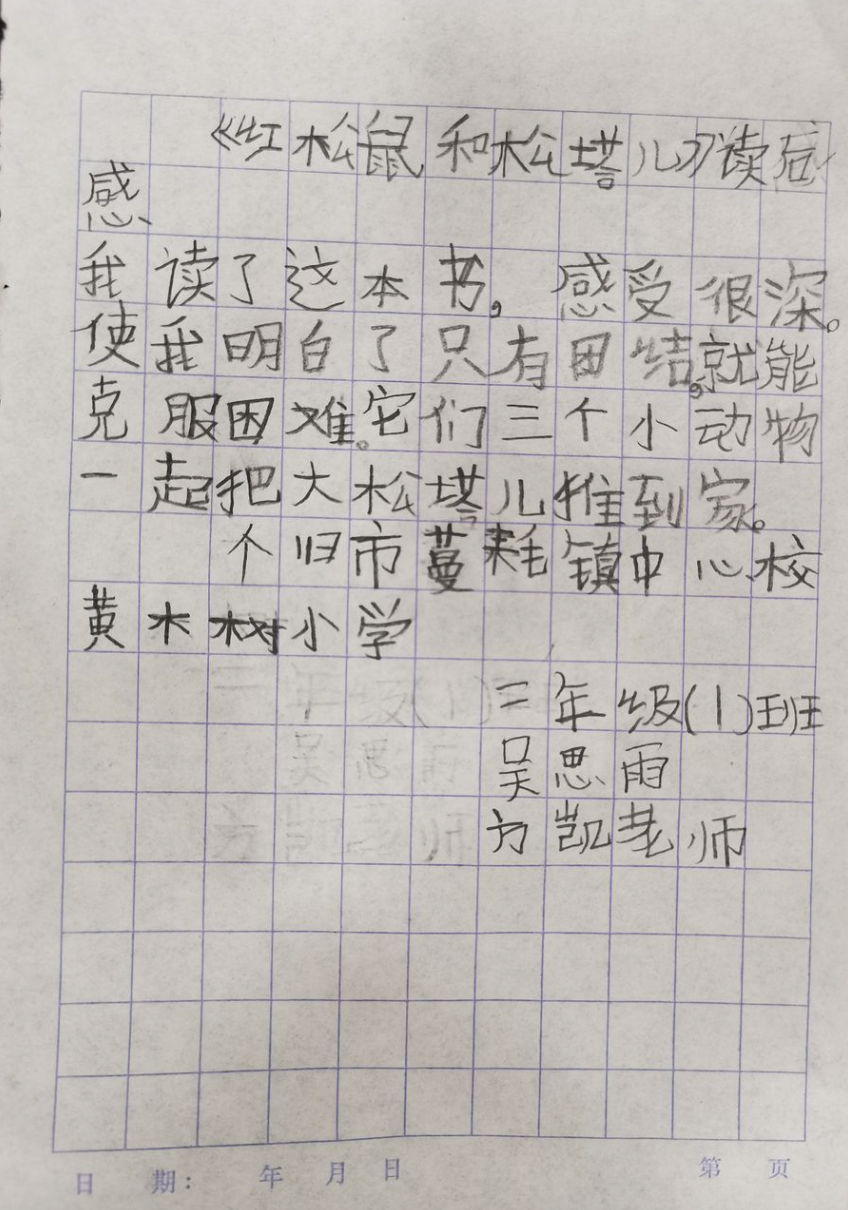 《红松鼠和松塔儿》读后
感
我读了这本书，感受很深。
使我明白了只有团结。就能
克服困难。它们三个小动物
一起把大松塔儿推到家。
个旧市蔓耗镇中心校
黄木树小学
二年级(1)班
吴思雨
方凯老师
日 期： 年 月 日 第 页